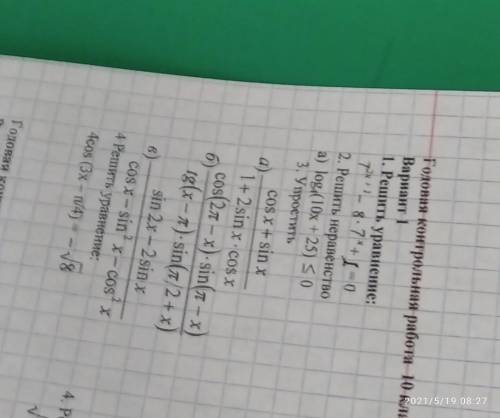 Годовая контрольная работа 10
Вариант 1
1. Решить уравнение:
7^{2x+1} - 8·7^x + 1 = 0
2. Решить неравенство
а) (10x + 25) ≤ 0
3. Упростить
а) \frac{cos x + sin x}{1 + 2 sin x · cos x}
б) \frac{cos(2π - x) · sin(π - x)}{tg(x - π) · sin(π/2 + x)}
в) \frac{sin 2x - 2 sin x}{cos x - sin² x - cos² x}
4 Решить уравнение:
4cos(3x - π/4) = -√8
Годовая
4.
√
2021/5/19 08:27